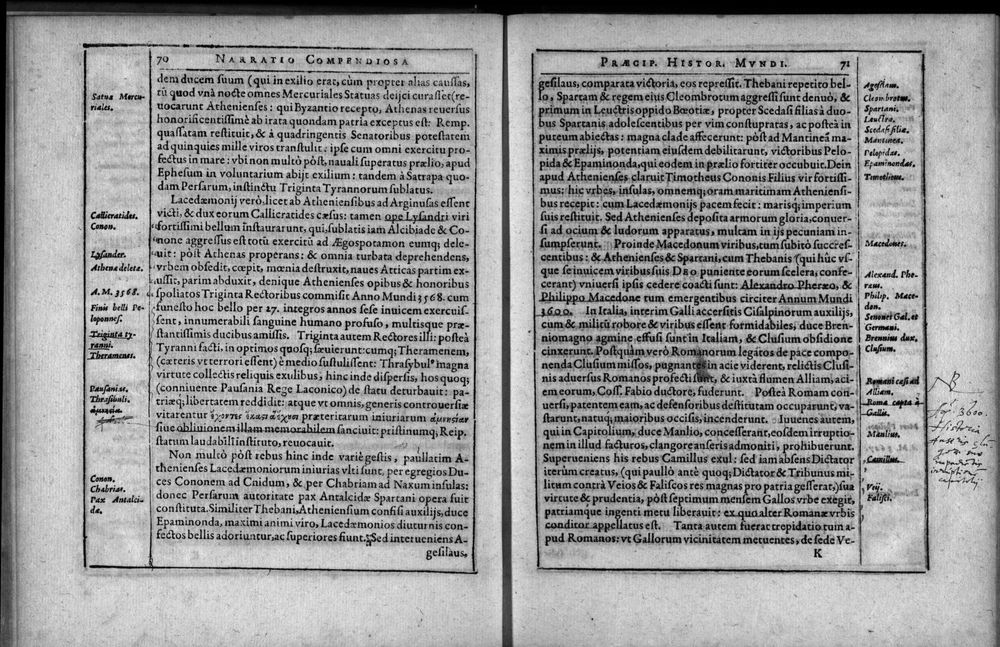 70 NARRATIO COMPENDIOSA
dem ducem suum (qui in exilio erat, cùm propter alias caussas,
tū quod vnà nocte omnes Mercuriales Statuas deijci curasset (re-
uocarunt Athenienses: qui Byzantio recepto, Athenas reuersus
honorificentissimè ab irata quondam patria exceptus est: Remp.
quassatam restituit, & à quadringentis Senatoribus potestatem
ad quinquies mille viros transtulit: ipse cum omni exercitu pro-
fectus in mare: vbi non multò pòst, nauali superatus prælio, apud
Ephesum in voluntarium abijt exilium: tandem à Satrapa quo-
dam Persarum, instinctu Triginta Tyrannorum sublatus.
Lacedæmonij verò, licet ab Atheniensibus ad Arginusas essent
victi, & dux eorum Callicratides cæsus: tamen ope Lysandri viri
fortissimi bellum instaurarunt, qui, sublatis iam Alcibiade & Co-
none aggressus est totū exercitū ad Ægospotamon eumq; dele-
uit: pòst Athenas properans: & omnia turbata deprehendens,
vrbem obsedit, cœpit, mœnia destruxit, naues Atticas partim ex-
ussit, parim abduxit, denique Athenienses opibus & honoribus
spoliatos Triginta Rectoribus commisit Anno Mundi 3568. cum
funesto hoc bello per 27. integros annos sese inuicem exercuis-
sent, innumerabili sanguine humano profuso, multisque præ-
stantissimis ducibus amissis. Triginta autem Rectores illi: posteà
Tyranni facti, in optimos quosq; sæuierunt: cumq; Theramenem,
(cæteris vt terrori essent) è medio sustulissent: Thrasybul⁹ magna
virtute collectis reliquis exulibus, hinc inde dispersis, hos quoq;
(conniuente Pausania Rege Laconico) de statu deturbauit: pa-
triæq; libertatem reddidit: atque vt omnis, generis controuersiæ
vitarentur præteritarum iniuriarum ἀμνηστίαν
siue obliuionem illam memorabilem sanciuit: pristinumq; Reip.
statum laudabili instituto, reuocauit.
Non multò pòst rebus hinc inde variè gestis, paullatim A-
thenienses Lacedæmoniorum iniurias vlti sunt, per egregios Du-
ces Cononem ad Cnidum, & per Chabriam ad Naxum insulas:
donec Persarum autoritate pax Antalcidæ Spartani opera fuit
constituta. Similiter Thebani, Atheniensium confisi auxilijs, duce
Epaminonda, maximi animi viro, Lacedæmonios diuturnis con-
fectos bellis adoriuntur, ac superiores fiunt. Sed interueniens A-
gesilaus,
Satua Mercu-
riales.
Callicratides.
Conon.
Lysander.
Athenæ deletæ.
A. M. 3568.
Finis belli Pe-
loponnes.
Triginta ty-
ranni.
Theramenes.
Pausanias.
Thrasibuli.
Conon.
Chabrias.
Pax Antalci-
dæ.
PRÆCIP. HISTOR. MVNDI. 71
gesilaus, comparata victoria, eos repressit. Thebani repetito bel-
lo, Spartam & regem eius Cleombrotum aggressi sunt denuò, &
primum in Leuctris oppido Bœotiæ, propter Scedasi filias à duo-
bus Spartanis adolescentibus per vim constupratas, ac posteà in
puteum abiectas: magna clade affecerunt: pòst ad Mantineā ma-
ximis prælijs, potentiam eiusdem debilitarunt, victoribus Pelo-
pida & Epaminonda, qui eodem in prælio fortiter occubuit. Dein
apud Athenienses claruit Timotheus Cononis Filius vir fortissi-
mus: hic vrbes, insulas, omnemq; oram maritimam Atheniensi-
bus recepit: cum Lacedæmonijs pacem fecit: marisq; imperium
suis restituit. Sed Athenienses deposita armorum gloria, conuer-
si ad ocium & ludorum apparatus, multam in ijs pecuniam in-
sumpserunt. Proinde Macedonum viribus, tum subitò succres-
centibus: & Athenienses & Spartani, cum Thebanis (qui hùc vs-
que se inuicem viribus suis DEO puniente eorum scelera, confe-
cerant) vniuersi ipsis cedere coacti sunt: Alexandro Pheræo, &
Philippo Macedone tum emergentibus circiter Annum Mundi
3600. In Italia, interim Galli accersitis Cisalpinorum auxilijs,
cum & militū robore & viribus essent formidabiles, duce Bren-
nio magno agmine effusi sunt in Italiam, & Clusium obsidione
cinxerunt. Postquàm verò Romanorum legatos de pace compo-
nenda Clusium missos, pugnantes in acie viderent, relictis Clusi-
nis aduersus Romanos profecti sunt, & iuxtà flumen Alliam, aci-
em eorum, Coss. Fabio ductore, fuderunt. Posteà Romam con-
uersi, patentem eam, ac defensoribus destitutam occuparunt, va-
starunt, natuq; maioribus occisis, incenderunt. Iuuenes autem,
qui in Capitolium, duce Manlio, concesserant, eosdem irruptio-
nem in illud facturos, clangore anseris admoniti, prohibuerunt.
Superueniens his rebus Camillus exul: sed iam absens Dictator
iterùm creatus, (qui paullò antè quoq; Dictator & Tribunus mi-
litum contrà Veios & Faliscos res magnas pro patria gesserat,) sua
virtute & prudentia, pòst septimum mensem Gallos vrbe exegit,
patriamque ingenti metu liberauit: ex quo alter Romanæ vrbis
conditor appellatus est. Tanta autem fuerat trepidatio tum a-
pud Romanos: vt Gallorum vicinitatem metuentes, de sede Ve-
K
Agesilaus.
Cleombrotus.
Spartani.
Leuctra.
Scedasi filiæ.
Mantinea.
Pelopidas.
Epaminondas.
Timotheus.
Macedones.
Alexand. Phe-
ræus.
Philip. Mace-
don.
Senones Gal. et
Germani.
Brennius dux.
Clusium.
Romani cæsi ad
Alliam.
Roma capta à
Gallis.
Manlius.
Camillus.
Veij.
Falisci.
3600.